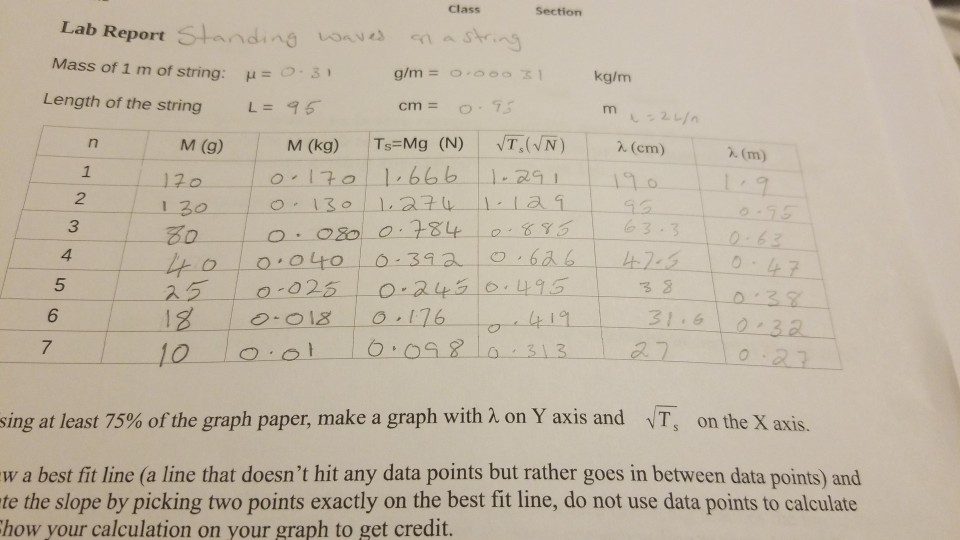 Class Section
Lab Report Standing waves on a string
Mass of 1 m of string: μ = 0.31 g/m = 0.00031 kg/m
Length of the string L = 95 cm = 0.95 m L = 2L/n
n M (g) M (kg) Ts=Mg (N) √Ts(√N) λ (cm) λ (m)
1 170 0.170 1.666 1.291 190 1.9
2 130 0.130 1.274 1.129 95 0.95
3 80 0.080 0.784 0.885 63.3 0.63
4 40 0.040 0.392 0.626 47.5 0.47
5 25 0.025 0.245 0.495 38 0.38
6 18 0.018 0.176 0.419 31.6 0.32
7 10 0.01 0.098 0.313 27 0.27
sing at least 75% of the graph paper, make a graph with λ on Y axis and √Ts on the X axis.
w a best fit line (a line that doesn't hit any data points but rather goes in between data points) and
te the slope by picking two points exactly on the best fit line, do not use data points to calculate
Show your calculation on your graph to get credit.